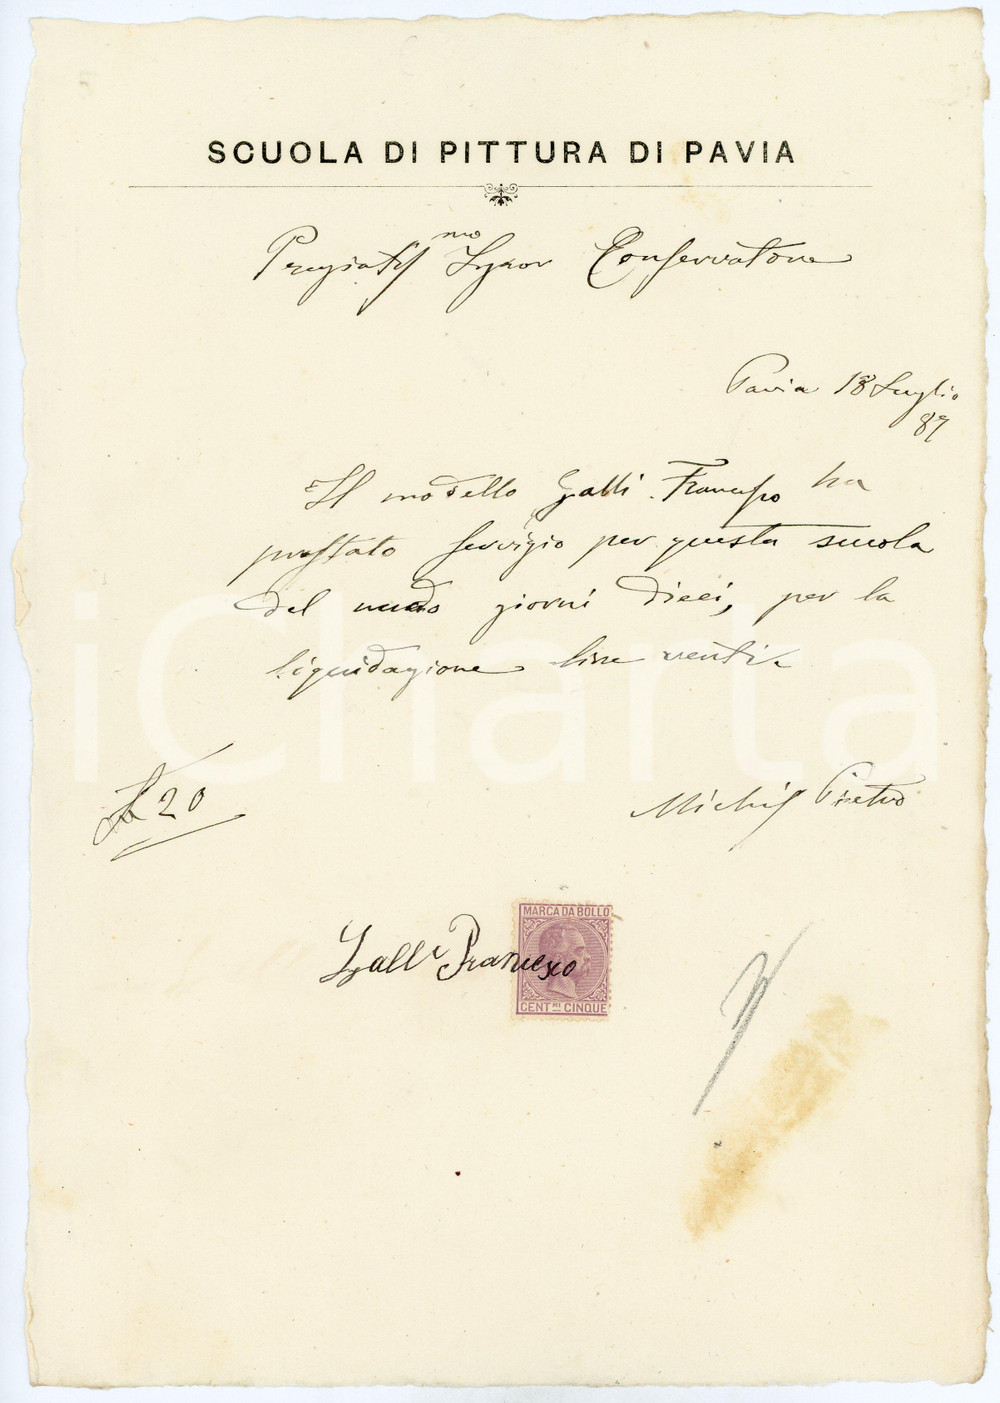 SCUOLA DI PITTURA DI PAVIA
Pregiatiss mo Signor Conservatore
Pavia 18 Luglio
89
Il modello Galli Francesco ha
prestato servizio per questa scuola
del nudo giorni dieci, per la
liquidazione lire venti.
L 20
Michis Pietro
MARCA DA BOLLO
Galli Francesco
CENT.MI CINQUE
iCharta